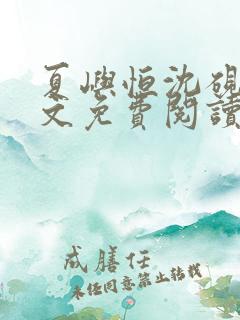 夏嶼恒沈硯
文免費閱讀
成膳任
未经同意禁止转载